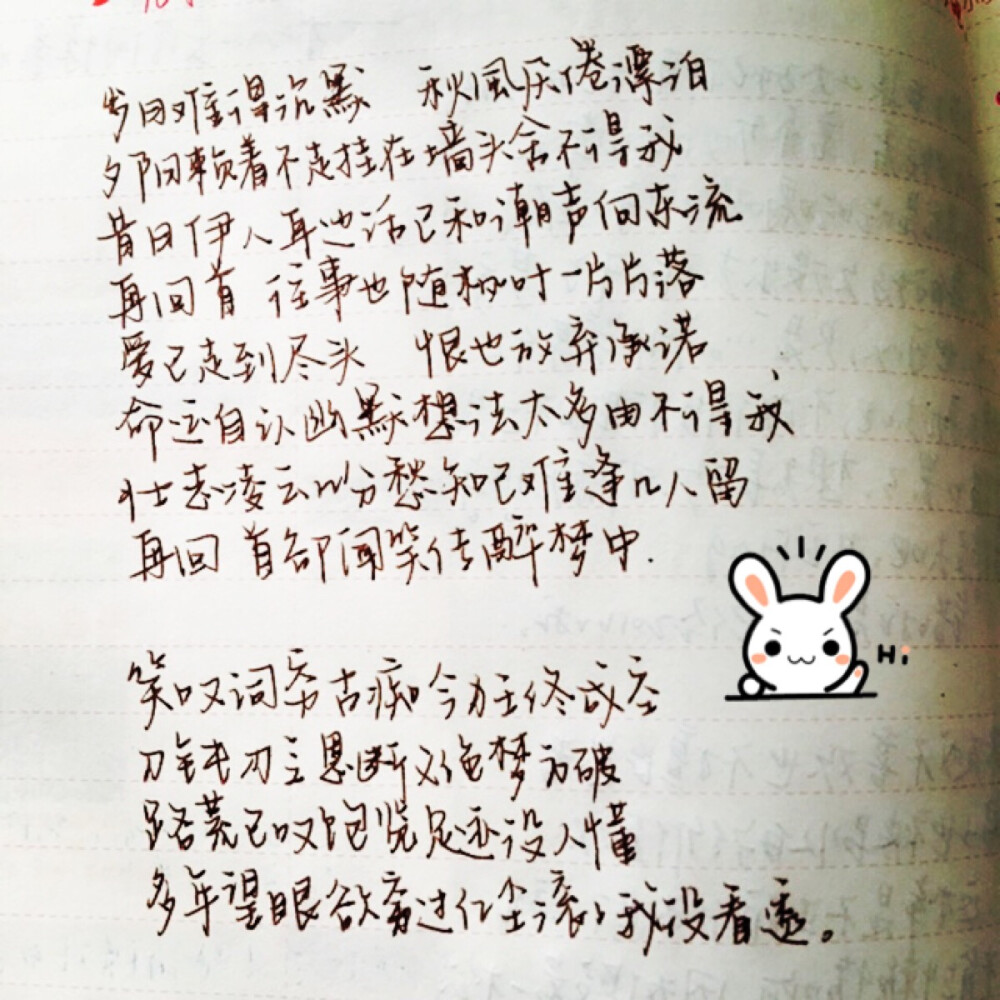 岁月难得沉默 秋風厌倦漂泊
夕阳赖着不走挂在墙头舍不得我
昔日伊人耳边话已和潮声向东流
再回首 往事也随枫叶一片片落
爱已走到尽头 恨也放弃承诺
命运自认幽默想法太多由不得我
壮志凌云几分愁知己难逢几人留
再回首却闻笑传醉梦中.
Hi
笑叹词穷古痴今狂终成空
刀钝刃乏恩断义绝梦方破
路荒已叹饱览足迹没人懂
多年望眼欲穿过红尘滚々我没看透。